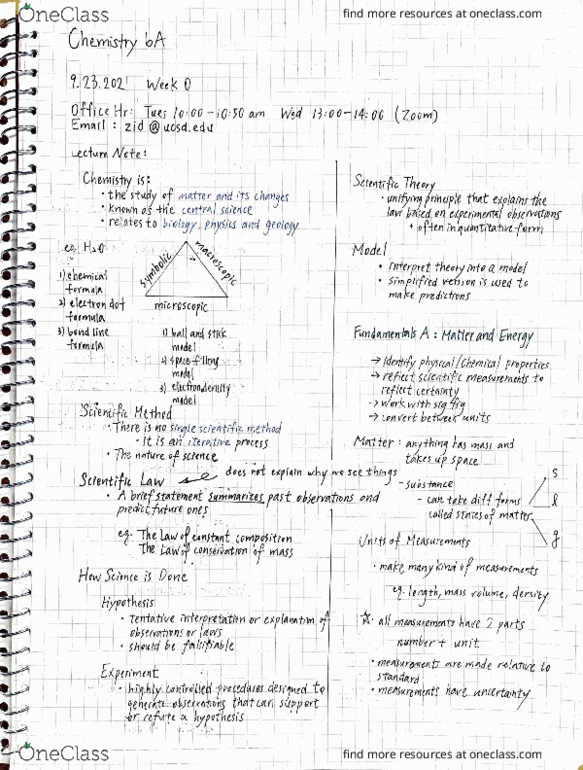 OneClass
find more resources at oneclass.com
Chemistry 6A
9.23.2021 Week 0
Office Hr: Tues 10:00-10:50 am Wed 13:00-14:00 (Zoom)
Email : zid @ ucsd.edu
Lecture Note:
Chemistry is:
• the study of matter and its changes
• known as the central science
• relates to biology, physics and geology
eg. H2O
symbolic
macroscopic
microscopic
1) chemical
formula
2) electron dot
formula
3) bond line
formula
1) ball and stick
model
2) space filling
model
3) electron density
model
Scientific Method
• There is no single scientific method
- It is an iterative process
• The nature of science
Scientific Law
does not explain why we see things
• A brief statement summarizes past observations and
predict future ones
eg. The Law of constant composition
The Law of conservation of mass
How Science is Done
Hypothesis
• tentative interpretation or explanation of
observations or laws
• should be falsifiable
Experiment
• highly controlled procedures designed to
generate observations that can support
or refute a hypothesis
Scientific Theory
• unifying principle that explains the
law based on experimental observations
• often in quantitative form
Model
• interpret theory into a model
• simplified version is used to
make predictions
Fundamentals A : Matter and Energy
→ Identify physical/Chemical properties
→ reflect scientific measurements to
reflect certainty
→ Work with sig fig
→ convert between units
Matter : anything has mass and
takes up space
- substance
- can take diff forms
called states of matter
s
l
g
Units of Measurements
• make many kind of measurements
eg. length, mass volume, density
☆ all measurements have 2 parts
number + unit
• measurements are made relative to
standard
• measurements have uncertainty
OneClass
find more resources at oneclass.com